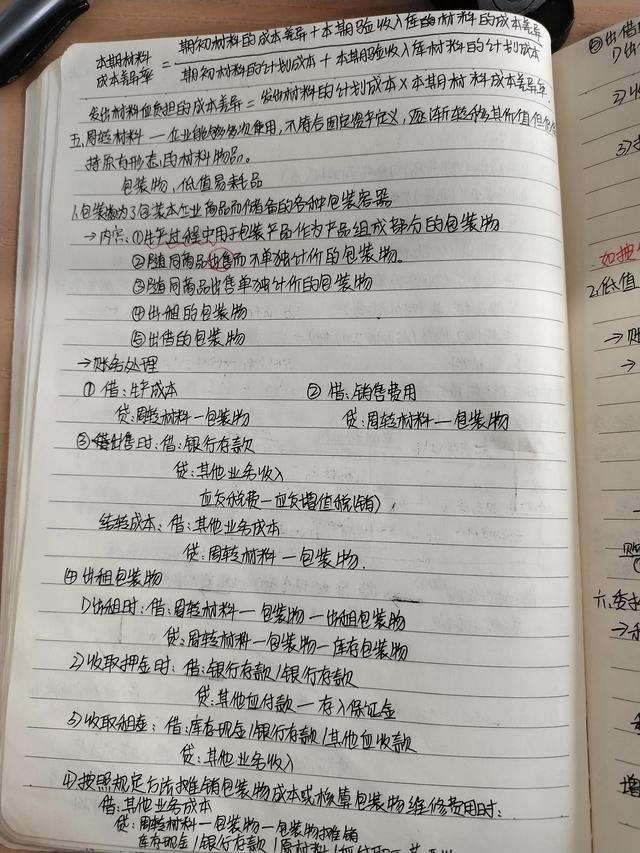 本期材料成本差异率 = 期初材料的成本差异+本期验收入库的材料的成本差异
期初材料的计划成本+本期验收入库材料的计划成本
发出材料应负担的成本差异=发出材料的计划成本×本期材料成本差异率
五.周转材料—企业能够多次使用,不符合固定资产定义,逐渐转移其价值但仍
持原有形态的材料物品。
包装物,低值易耗品
1.包装物为了包装本企业商品而储备的各种包装容器
→内容:①生产过程中用于包装产品作为产品组成部分的包装物
②随同商品出售而不单独计价的包装物。
③随同商品出售单独计价的包装物
④出租的包装物
⑤出借的包装物
→账务处理
① 借:生产成本 ② 借:销售费用
贷:周转材料—包装物 贷:周转材料—包装物
③出售时:借:银行存款
贷:其他业务收入
应交税费—应交增值税(销)
结转成本:借:其他业务成本
贷:周转材料—包装物.
④出租包装物
1)出租时:借:周转材料—包装物—出租包装物
贷:周转材料—包装物—库存包装物
2)收取押金时:借:银行存款/银行存款
贷:其他应付款—存入保证金
3)收取租金:借:库存现金/银行存款/其他应收款
贷:其他业务收入
4)按照规定方法摊销包装物成本或核算包装物维修费用时:
借:其他业务成本
贷:周转材料—包装物—包装物摊销
库存现金/银行存款/原材料/应付职工
⑤出借
1)出
2)收
3)
如抽
2.低值
→账
→
账
①
六.委托
→
增